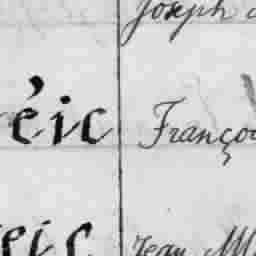 Joseph
éic François
eic Jean M